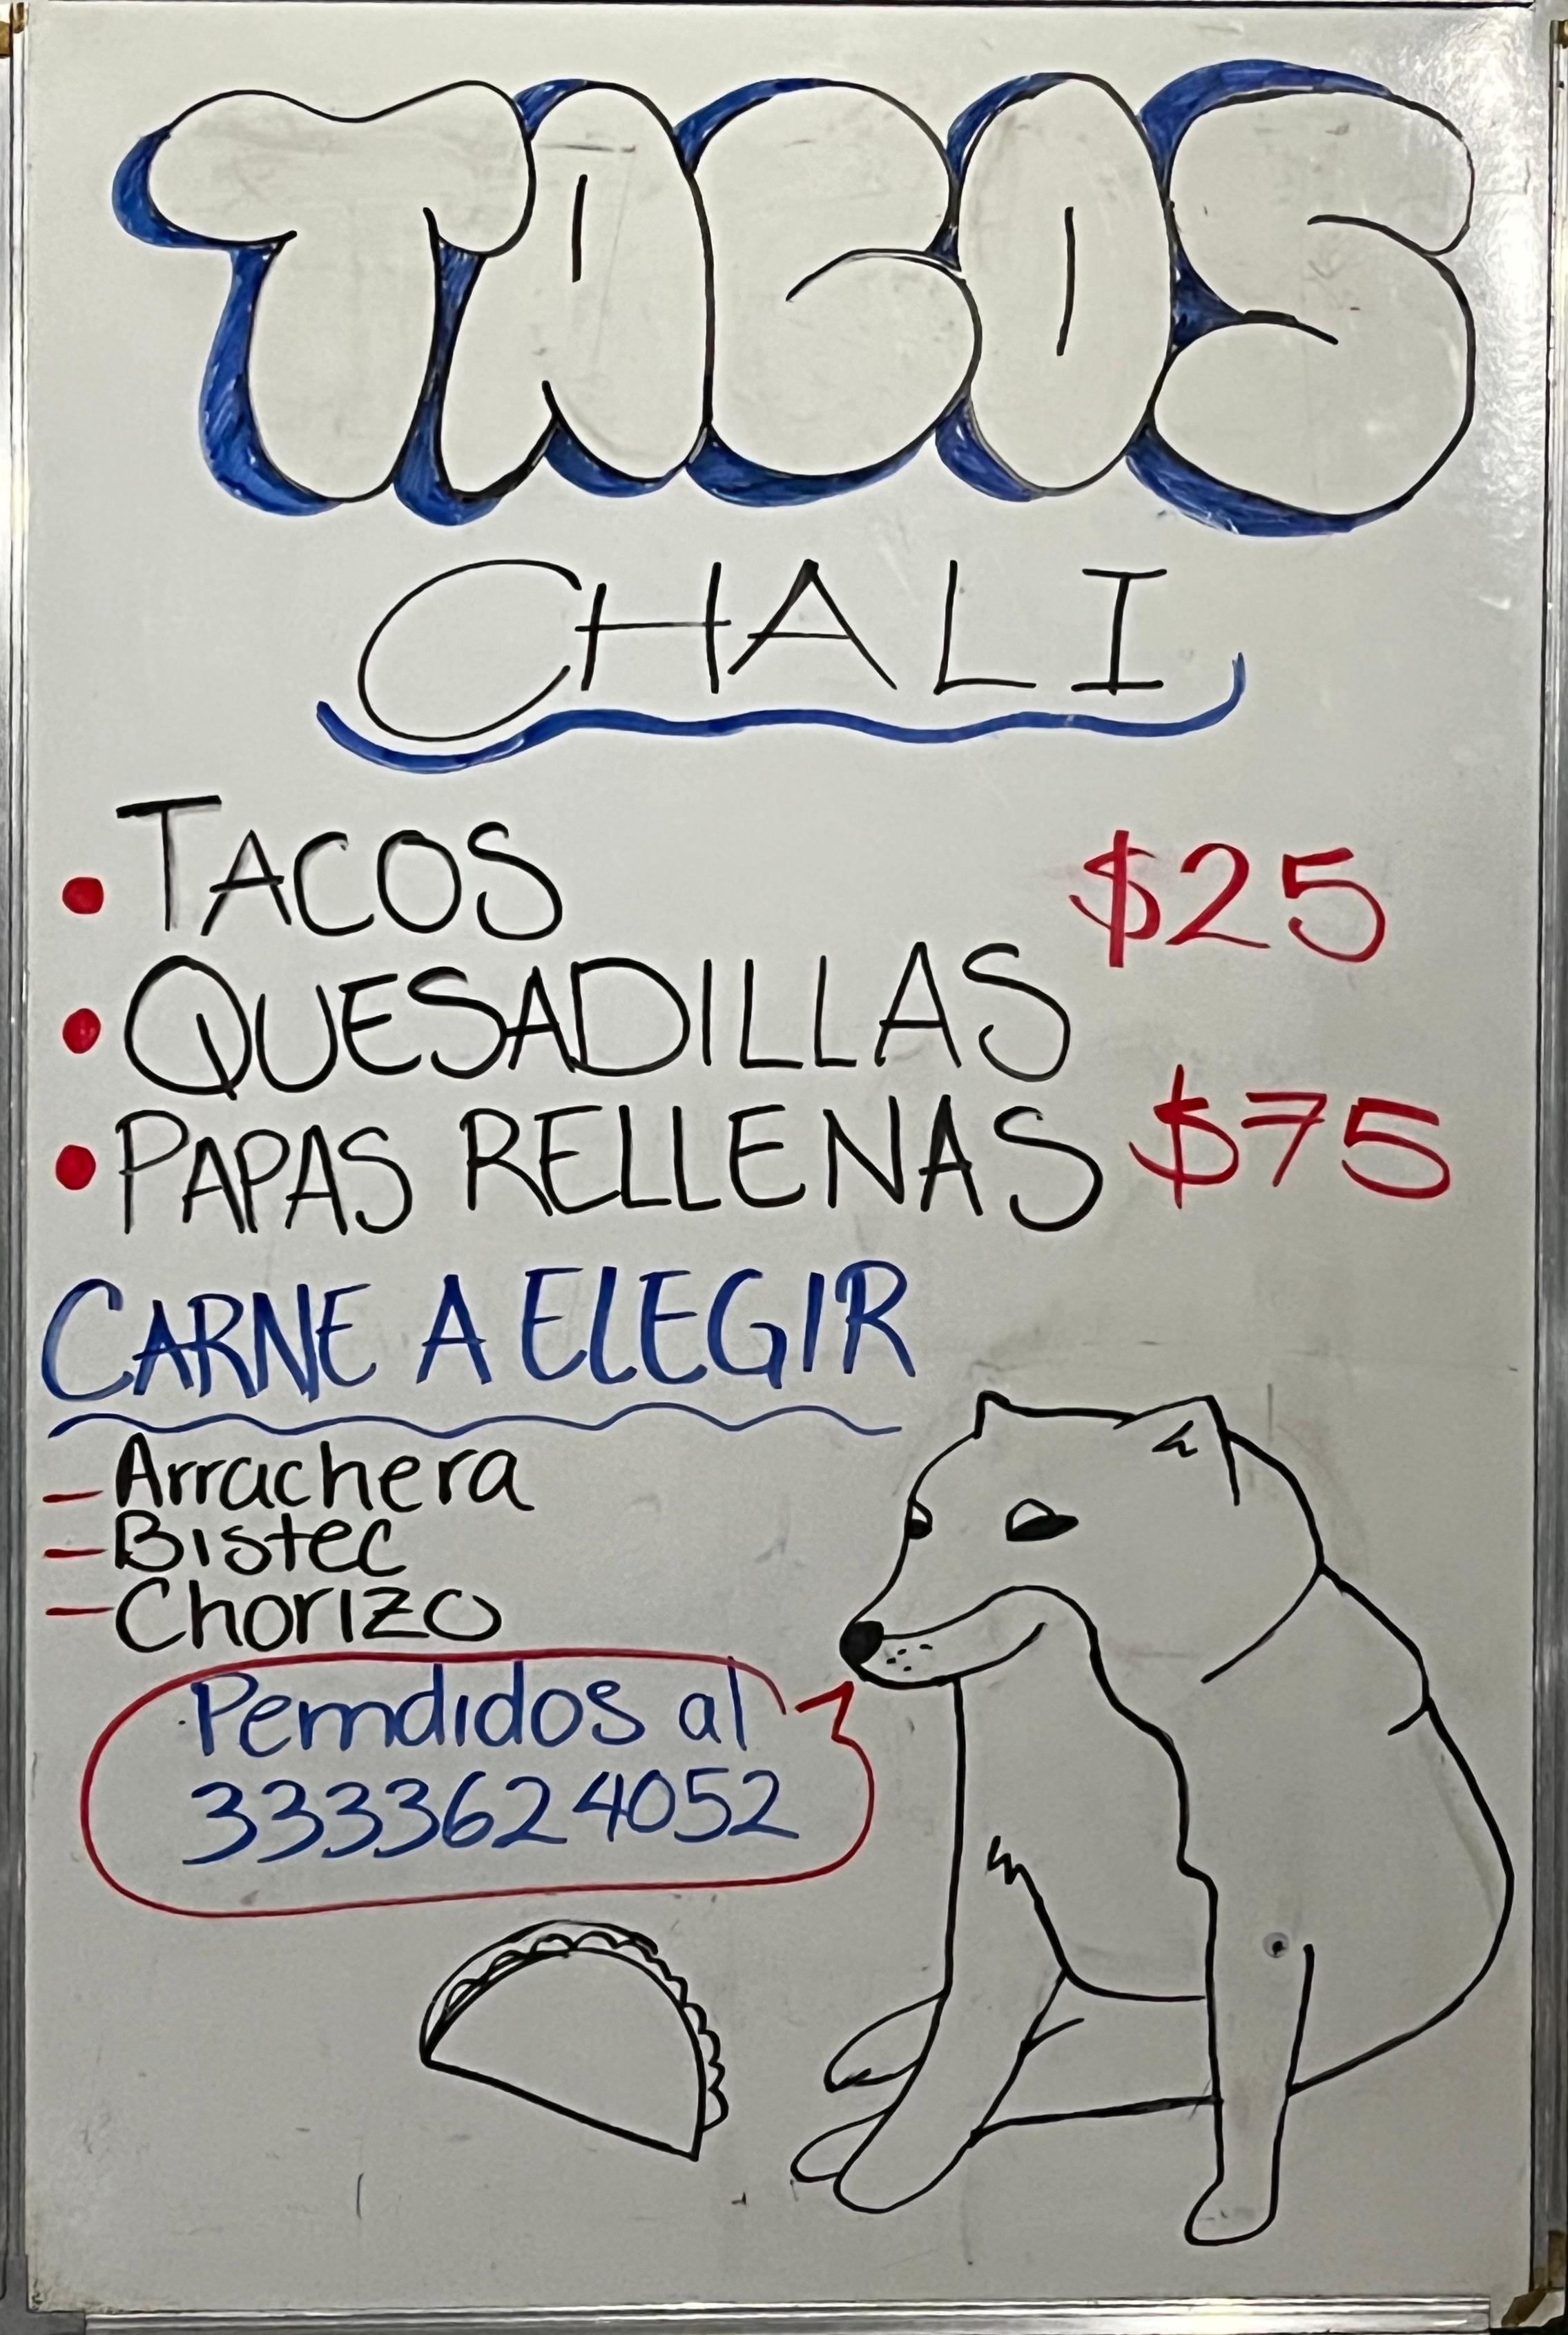 TACOS
CHALI
• TACOS $25
• QUESADILLAS
• PAPAS RELLENAS $75
CARNE A ELEGIR
- Arrachera
- Bistec
- Chorizo
Pemdidos al
3333624052